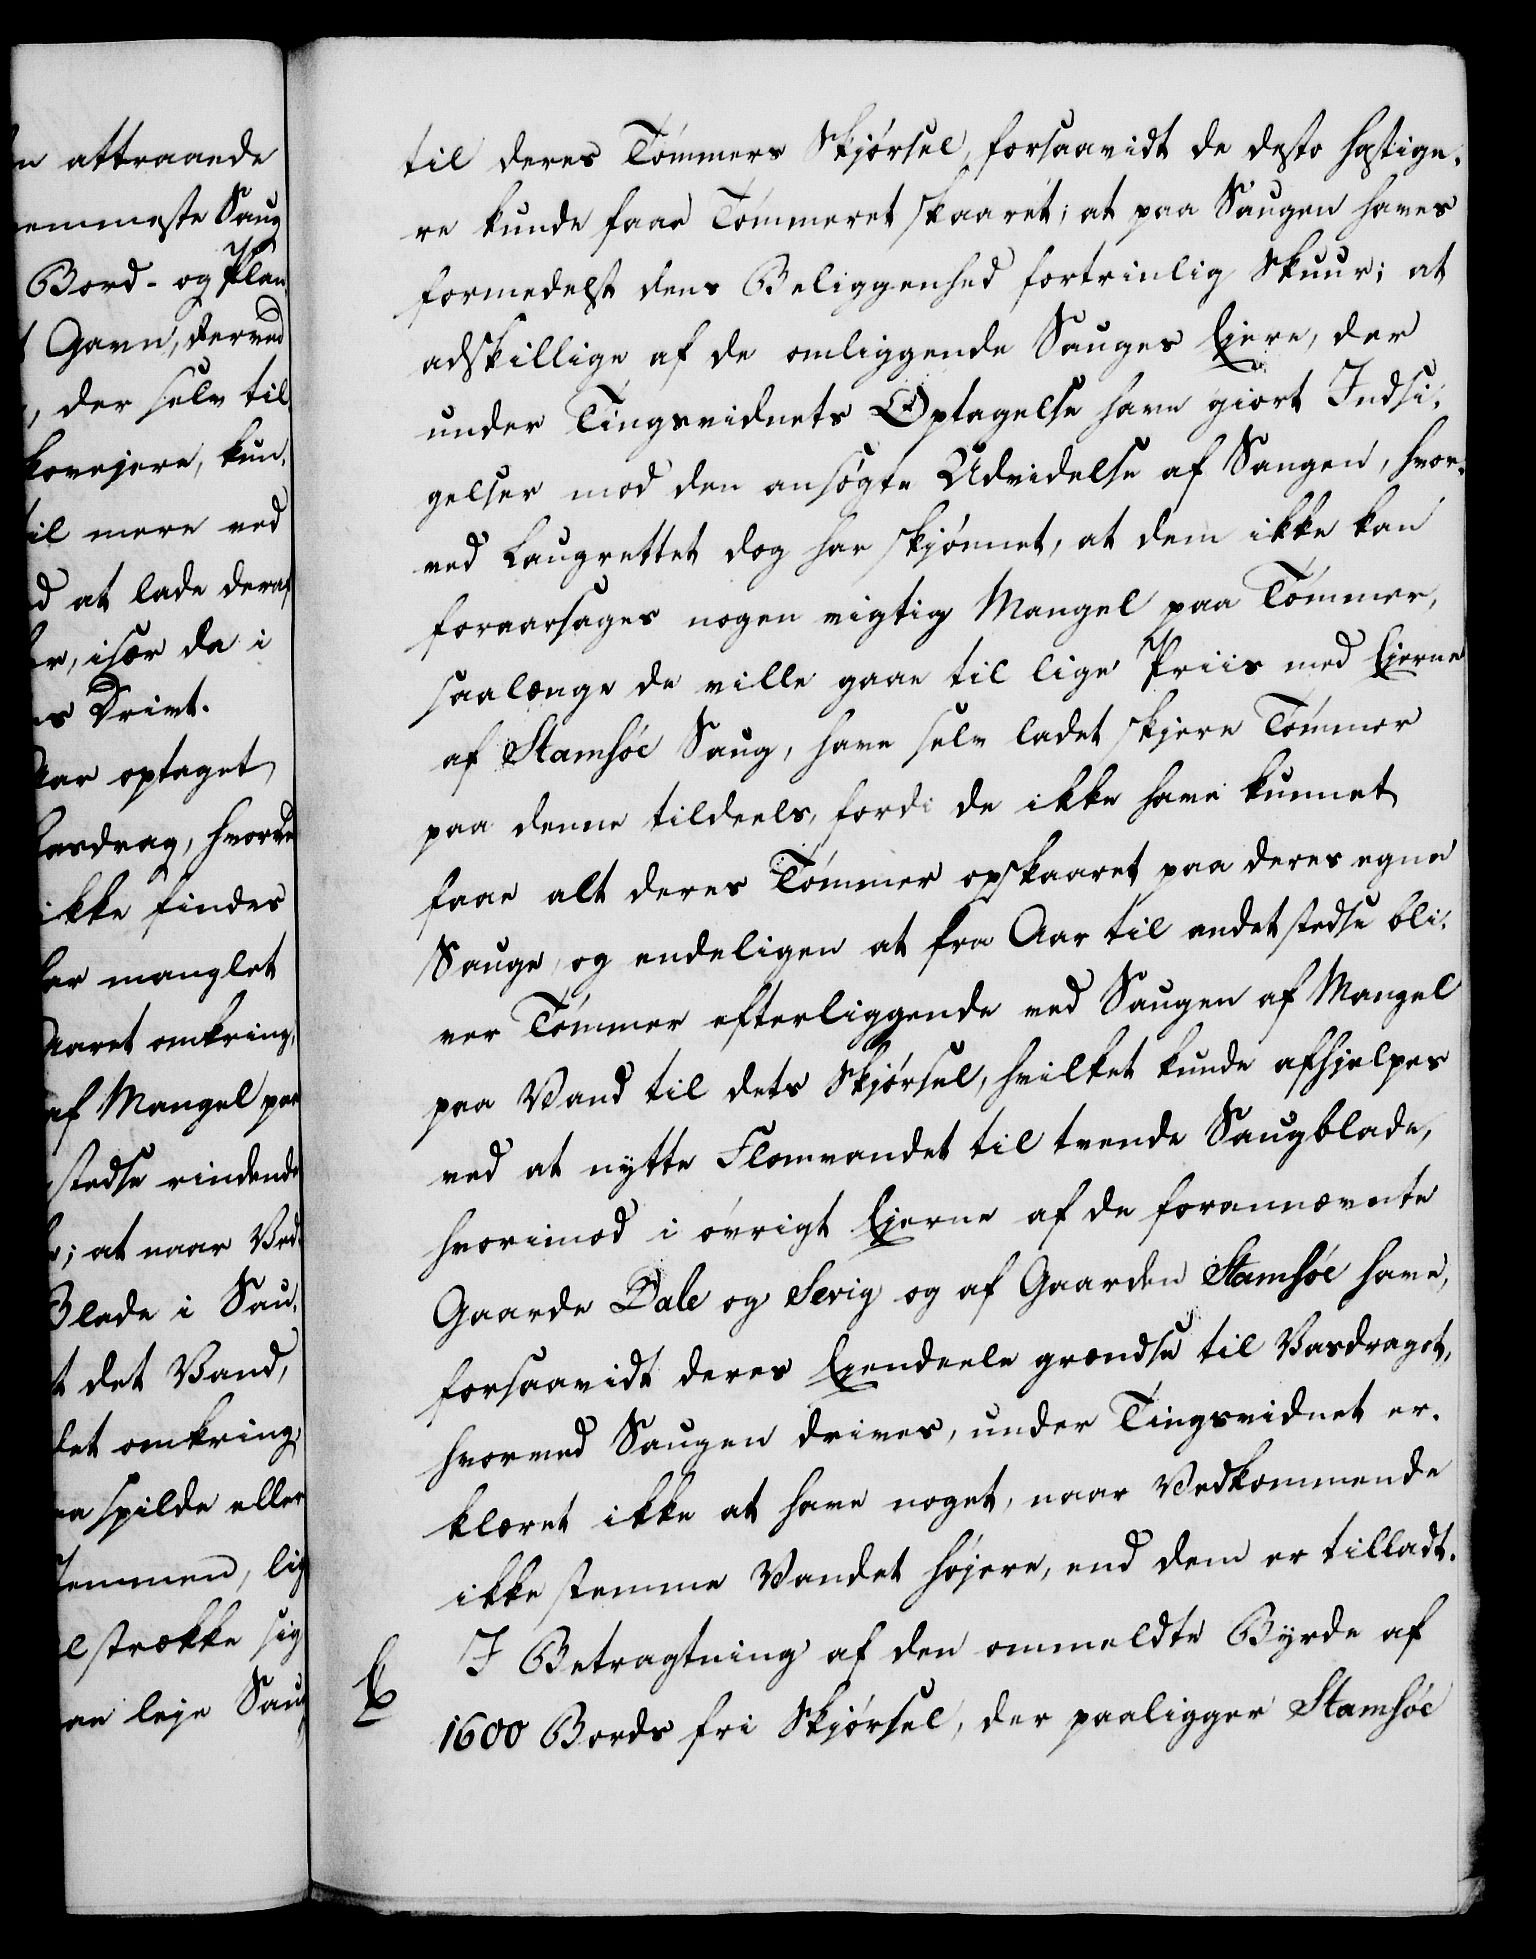 n attraaede
emmeste Saug
Bord- og Plan
t Gavn, derved
, der selv til
kovejere, kun,
til mere ved
d at lade deraf
er, især da i
es Drivt.
Aar optaget
asdrag, hvorve
ikke findes
har manglet
aaret omkring,
af Mangel paa
stedse rindende
; at naar Ved
Blade i Sau,
t det Vand,
det omkring
a spilde eller
temmen, lig
l strække sig
an leje Saug
til deres Tømmers Skjørsel, forsaavidt de desto hastige-
re kunde faae Tømmeret skaaret; at paa Saugen haves
formedelst dens Beliggenhed fortrinlig Skuur; at
adskillige af de omliggende Sauges Ejere, der
under Tingsvidnets Optagelse have giort Indsi-
gelser mod den ansøgte Udvidelse af Saugen, hvor-
ved Laugrettet dog har skjønnet, at dem ikke kan
foraarsages nogen vigtig Mangel paa Tømmer,
saalænge de ville gaae til lige Priis med Ejerne
af Stamsöe Saug, have selv ladet skjere Tømmer
paa denne tildeels, fordi de ikke have kunnet
faae alt deres Tømmer opskaaret paa deres egne
Sauge, og endeligen at fra Aar til andet stedse bli-
ver Tømmer efterliggende ved Saugen af Mangel
paa Vand til dets Skjørsel, hvilket kunde afhjelpes
ved at nytte Flomvandet til tvende Saugblade,
hvorimod i øvrigt Ejerne af de forannævnte
Gaarde Dale og Serig og af Gaarden Stamsöe have,
forsaavidt deres Ejendeele grændse til Vasdraget,
hvorved Saugen drives, under Tingsvidnet er-
klæret ikke at have noget, naar Vedkommende
ikke stemme Vandet højere, end dem er tilladt.
I Betragtning af den ommeldte Byrde af
1600 Bords fri Skjørsel, der paaligger Stamsöe